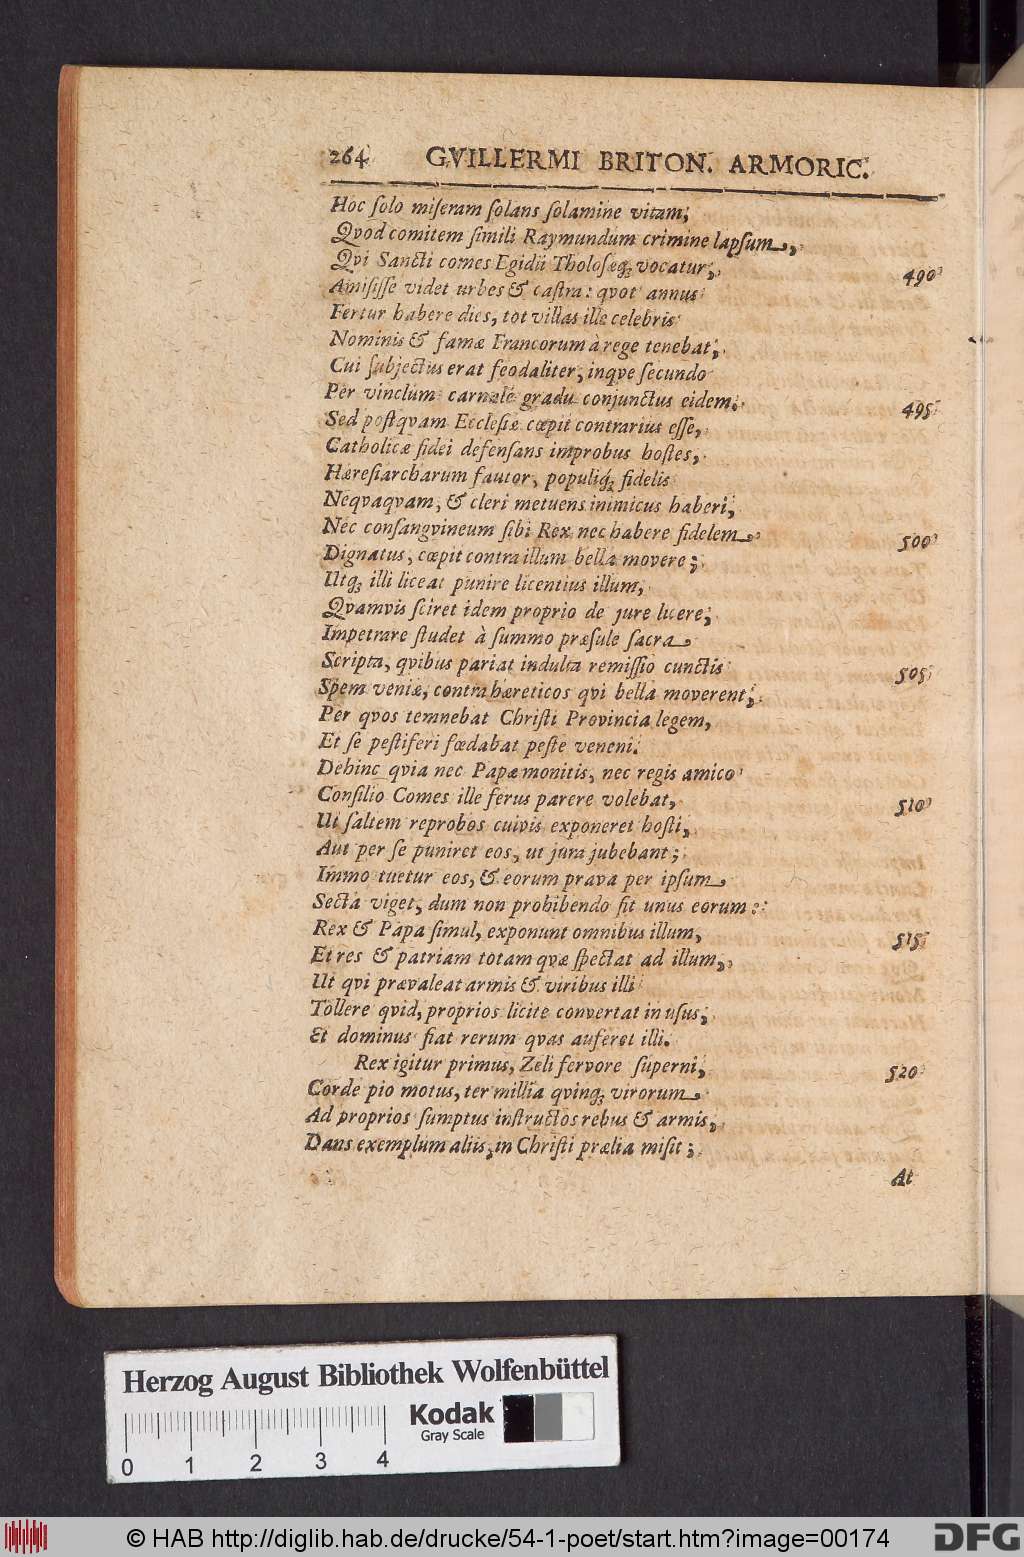 264 GVILLERMI BRITON. ARMORIC.
Hoc ſolo miſeram ſolans ſolamine vitam;
Qvod comitem ſimili Raymundum crimine lapſum,
Qvi Sancti comes Egidii Tholoſæq; vocatur, 490
Amiſiſſe videt urbes & caſtra: qvot annus
Fertur habere dies, tot villas ille celebris
Nominis & famæ Francorum à rege tenebat;
Cui ſubjectus erat feodaliter, inqve ſecundo
Per vinclum carnale gradu conjunctus eidem. 495
Sed poſtqvam Eccleſiæ cœpit contrarius eſſe,
Catholicæ fidei defenſans improbus hoſtes,
Hæreſiarcharum fautor, populiq; fidelis
Neqvaqvam, & cleri metuens inimicus haberi,
Nec conſangvineum ſibi Rex nec habere fidelem 500
Dignatus, cœpit contra illum bella movere;
Utq; illi liceat punire licentius illum,
Qvamvis ſciret idem proprio de jure licere,
Impetrare ſtudet à ſummo præſule ſacra
Scripta, qvibus pariat indulta remiſſio cunctis 505
Spem veniæ, contra hæreticos qvi bella moverent,
Per qvos temnebat Chriſti Provincia legem,
Et ſe peſtiferi fœdabat peſte veneni.
Dehinc qvia nec Papæ monitis, nec regis amico
Conſilio Comes ille ferus parere volebat, 510
Ut ſaltem reprobos cuivis exponeret hoſti,
Aut per ſe puniret eos, ut jura jubebant;
Immo tuetur eos, & eorum prava per ipſum
Secta viget, dum non prohibendo fit unus eorum:
Rex & Papa ſimul, exponunt omnibus illum, 515
Et res & patriam totam qvæ ſpectat ad illum,
Ut qvi prævaleat armis & viribus illi
Tollere qvid, proprios licite convertat in uſus,
Et dominus fiat rerum qvas auferet illi.
Rex igitur primus, Zeli fervore ſuperni, 520
Corde pio motus, ter millia qvinq; virorum
Ad proprios ſumptus inſtructos rebus & armis,
Dans exemplum aliis, in Chriſti prælia miſit;
At
Herzog August Bibliothek Wolfenbüttel
Kodak
Gray Scale
0 1 2 3 4
© HAB http://diglib.hab.de/drucke/54-1-poet/start.htm?image=00174
DFG